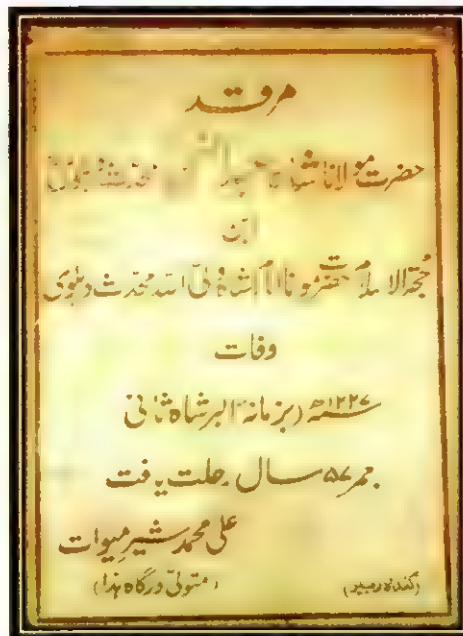 مرقد
حضرت مولانا شاہ عبدالغنی محدث دہلوی
ابن
حجۃ الاسلام حضرت مولانا امام شاہ ولی اللہ محدث دہلوی
وفات
سنہ ۱۲۲۷ھ (بزمانہ اکبر شاہ ثانی
بعمر ۵۷ سال رحلت یافت
علی محمد شیر میوات
(متولی درگاہ ہذا)